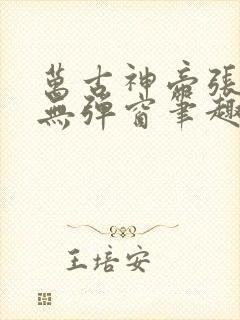 萬古神帝張
無彈窗筆趣
王培安